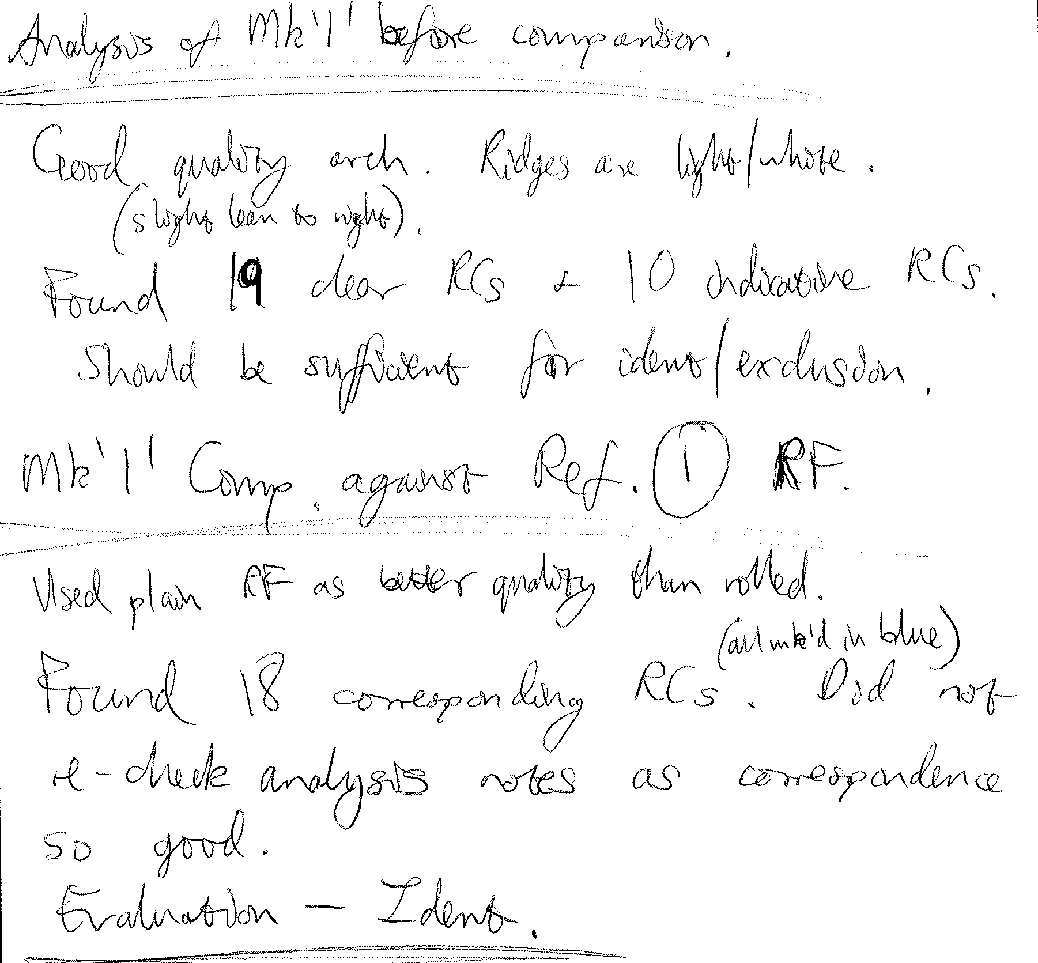 Analysis of Mk'1' before comparison.
Good quality arch. Ridges are light/white.
(slight lean to right).
Found 19 clear RCs + 10 indicative RCs.
Should be sufficient for ident/exclusion.
Mk'1' Comp. against Ref. 1 RF.
Used plain RF as better quality than rolled.
(all mk'd in blue)
Found 18 corresponding RCs. Did not
re-check analysis notes as correspondence
so good.
Evaluation – Ident.